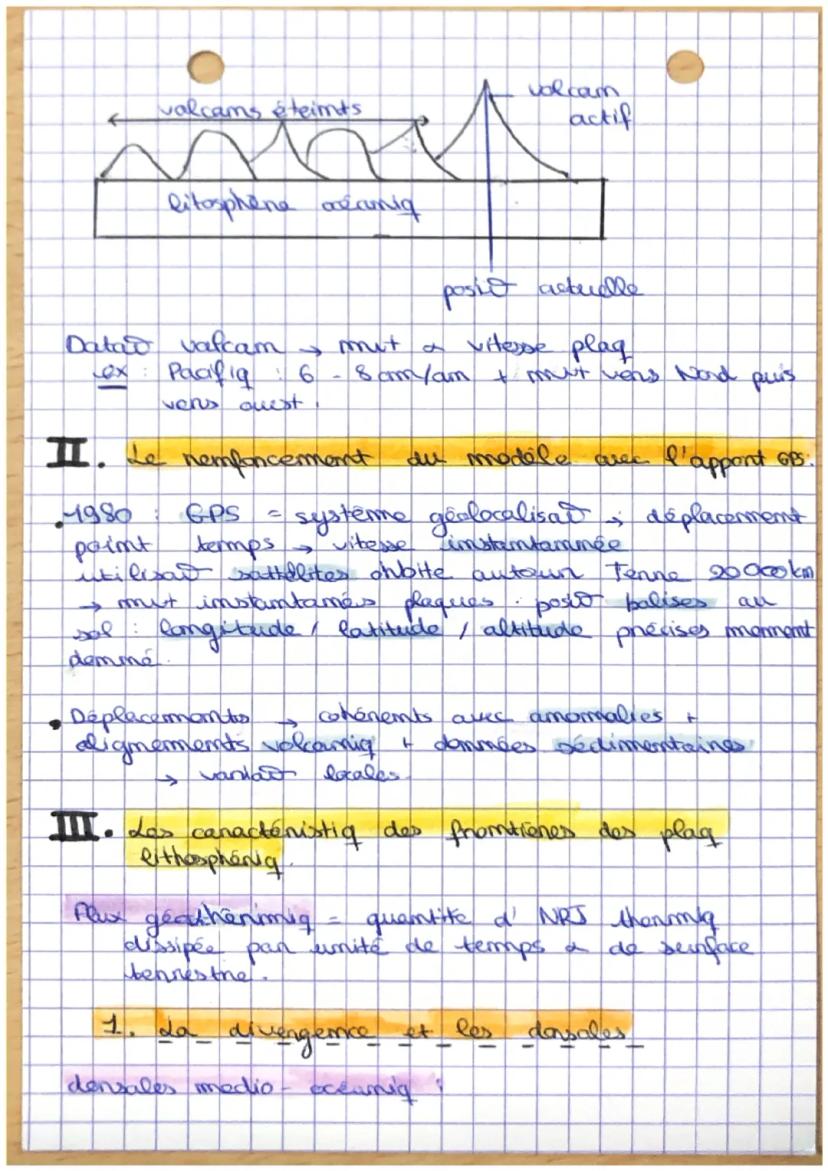 volcans éteints
volcan
actif
litosphère océaniq
posit° actuelle
Datat° volcan → mvt & vitesse plaq
ex : Pacifiq : 6 - 8 cm/an + mvt vers Nord puis
vers ouest.
II. Le renforcement du modèle avec l'apport GPS.
1980 : GPS = système géolocalisat° ; déplacement
point temps → vitesse instantannée
utilisat° sattélites orbite autour Terre 20000km
→ mvt instantanés plaques : posit° balises au
sol : longitude / latitude / altitude précises moment
donné.
• Déplacements → cohérents avec anomalies +
alignements volcaniq + données sédimentaines
→ variat° locales.
III. Les caractéristiq des frontières des plaq
lithosphériq.
Flux géothérmiq = quantité d' NRJ thermiq
dissipée par unité de temps & de surface
terrestre.
1. La divergence et les dorsales
dorsales medio-océaniq :